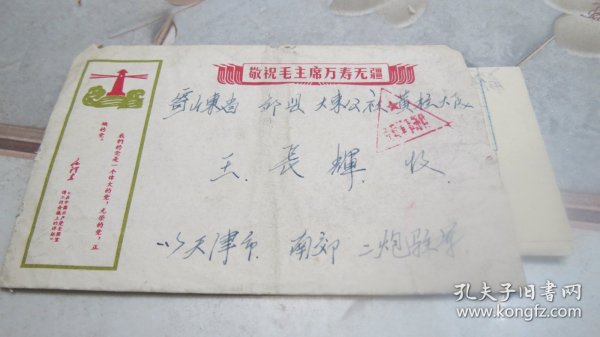 敬祝毛主席万寿无疆
寄山东省 邹县 大束公社 黄柱大队
王 長 輝 收
天津市 南郊 二炮驻军
我们的党是一个伟大的党，光荣的党，正
确的党。
毛泽东
孔夫子旧书网
www.kongfz.com